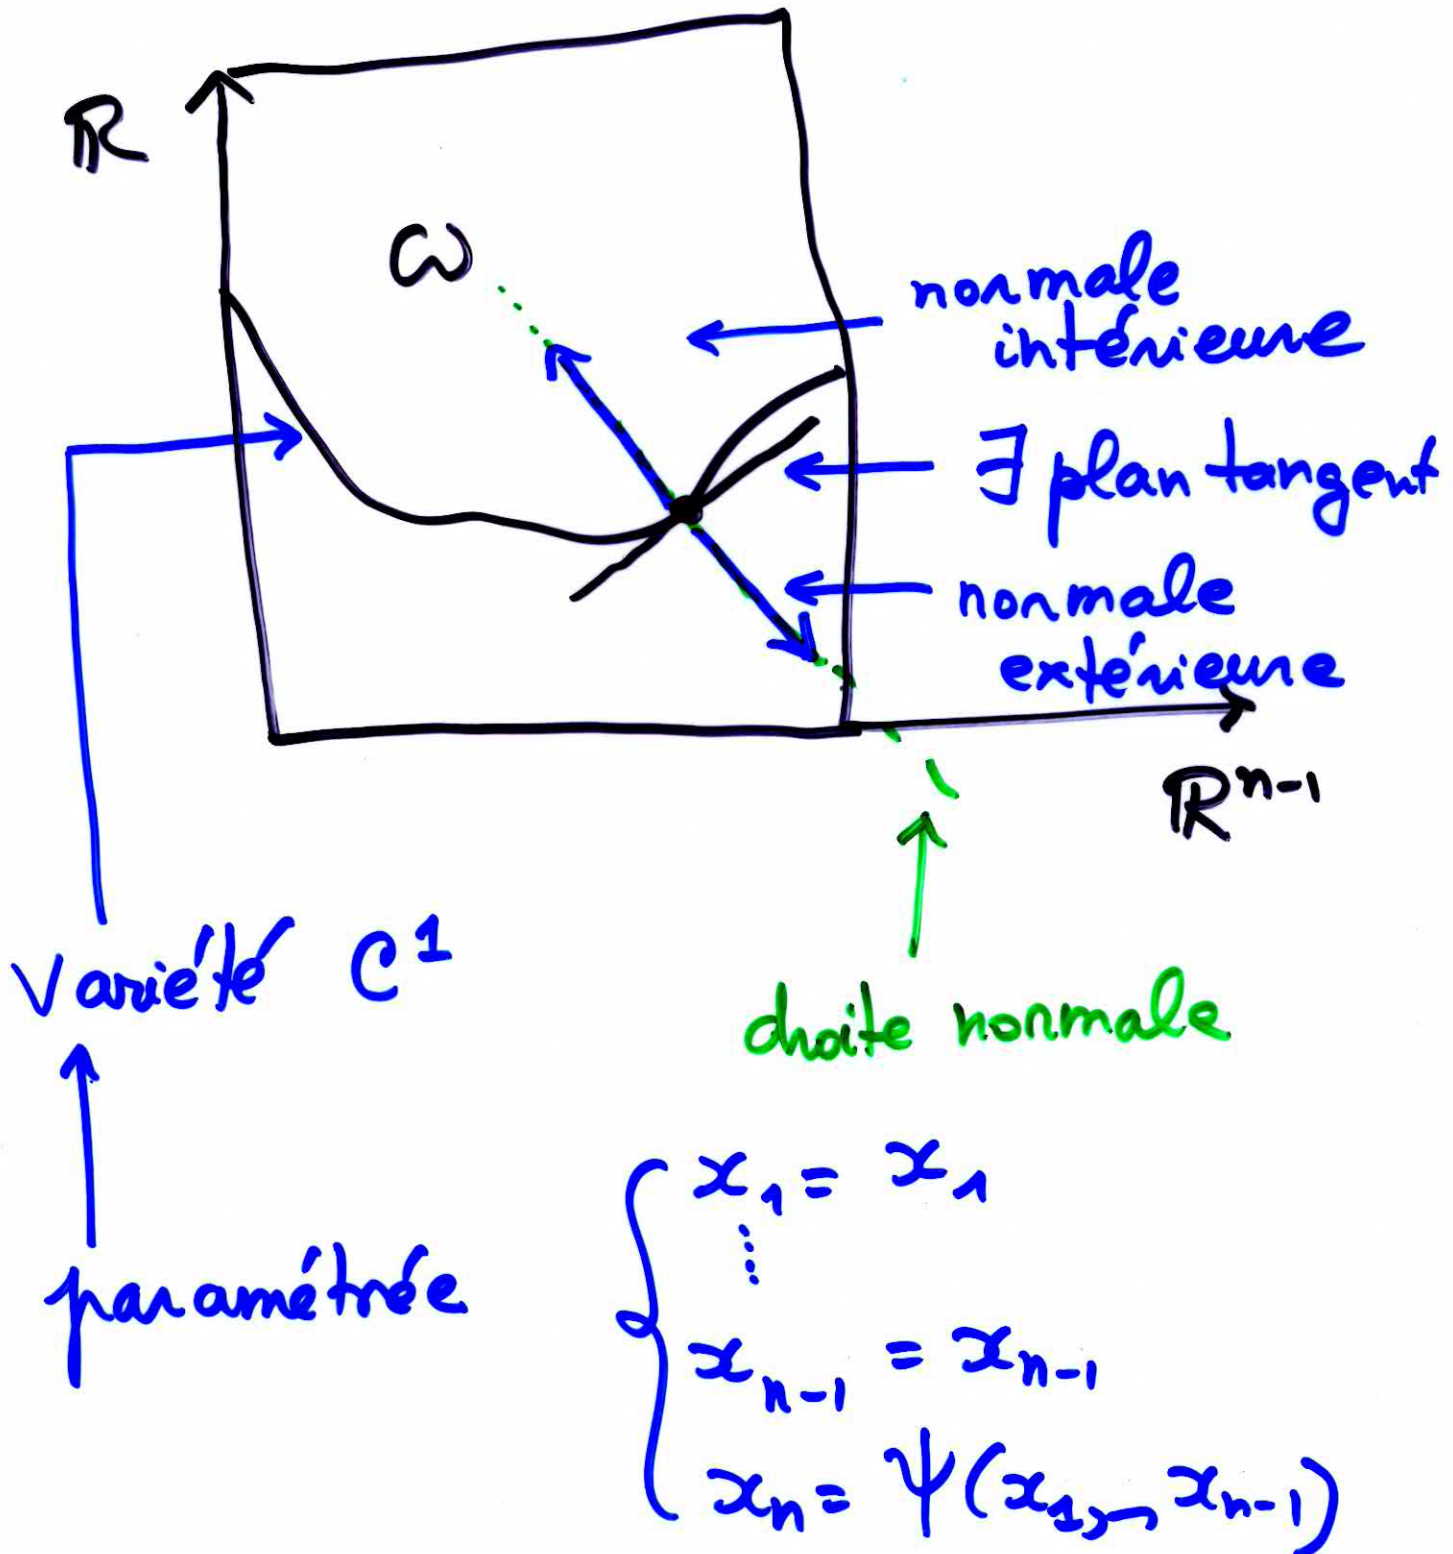 ℝ
ω
normale
intérieure
∃ plan tangent
normale
extérieure
ℝⁿ⁻¹
Variété C¹
droite normale
paramétrée
x₁ = x₁
⋮
xₙ₋₁ = xₙ₋₁
xₙ = ψ(x₁,–, xₙ₋₁)